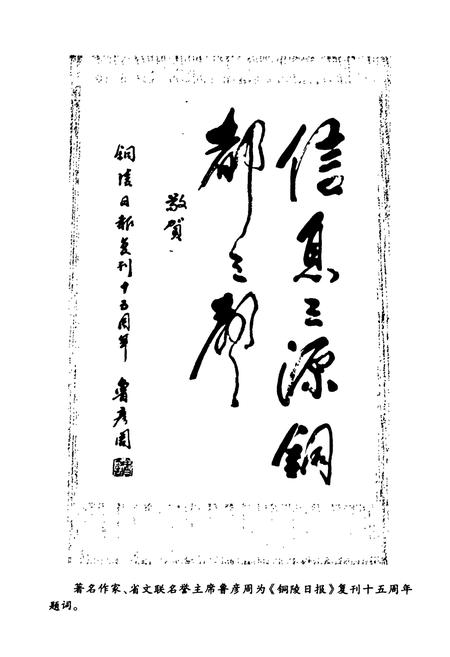 信息之源铜
都之声
敬贺
铜陵日报复刊十五周年 鲁彦周
著名作家、省文联名誉主席鲁彦周为《铜陵日报》复刊十五周年
题词。